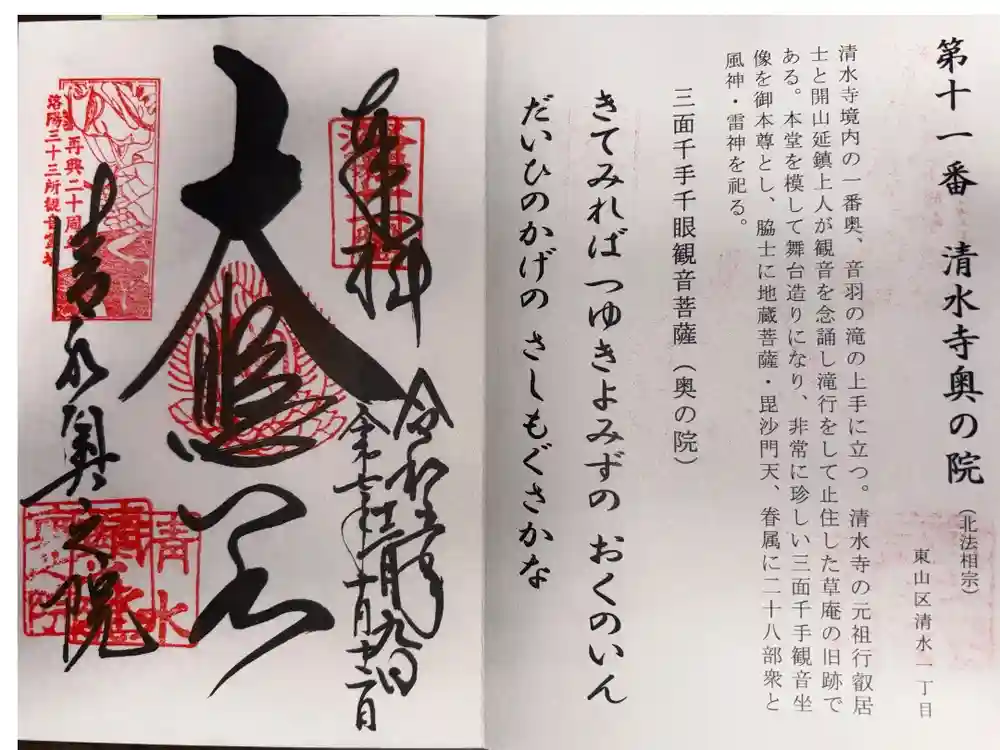 第十一番 清水寺奥の院（北法相宗）
東山区清水一丁目
清水寺境内の一番奥、音羽の滝の上手に立つ。清水寺の元祖行叡居
士と開山延鎮上人が観音を念誦し滝行をして止住した草庵の旧跡で
ある。本堂を模して舞台造りになり、非常に珍しい三面千手観音坐
像を御本尊とし、脇士に地蔵菩薩・毘沙門天、眷属に二十八部衆と
風神・雷神を祀る。
三面千手千眼観音菩薩（奥の院）
きてみれば つゆきよみずの おくのいん
だいひのかげの さしもぐさかな
奉拝
大悲閣
再興二十周年
洛陽三十三所観音霊場
清水奥之院
清水